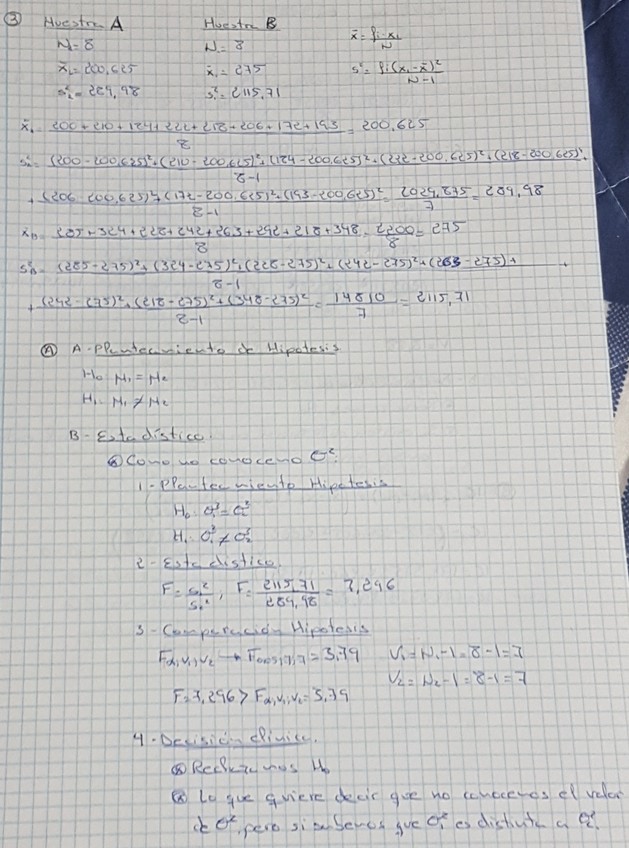 ③ Muestra A Muestra B x̄ = fi·xi / N
N = 8 N = 8 s² = fi(xi - x̄)² / N-1
x̄1 = 200,625 x̄2 = 275
s1² = 289,98 s2² = 2115,71
x̄1 = 200 + 210 + 184 + 222 + 218 + 206 + 172 + 193 / 8 = 200,625
s1² = (200 - 200,625)² + (210 - 200,625)² + (184 - 200,625)² + (222 - 200,625)² + (218 - 200,625)² / 8-1
+ (206 - 200,625)² + (172 - 200,625)² + (193 - 200,625)² / 8-1 = 2029,875 / 7 = 289,98
x̄B = 285 + 324 + 228 + 242 + 263 + 292 + 218 + 348 / 8 = 2200 / 8 = 275
s²B = (285 - 275)² + (324 - 275)² + (228 - 275)² + (242 - 275)² + (263 - 275) + / 8-1 +
+ (242 - 275)² + (218 - 275)² + (348 - 275)² / 8-1 = 14810 / 7 = 2115,71
Ⓐ A - Planteamiento de Hipotesis
H0 M1 = M2
H1 M1 ≠ M2
B - Estadístico.
⊗ Como no conoceno σ²:
1 - Planteamiento Hipotesis
H0 σ1² = σ2²
H1 σ1² ≠ σ2²
2 - Estadistico.
F = s2² / s1² , F = 2115,71 / 289,98 = 7,296
3 - Comparación Hipotesis
Fα,V1,V2 → F0,05,7,7 = 3,79 V1 = N1 - 1 = 8 - 1 = 7
V2 = N2 - 1 = 8 - 1 = 7
F = 7,296 > Fα,V1,V2 = 3,79
4 - Decisión clínica.
⊗ Rechazamos H0
⊗ Lo que quiere decir que no conocemos el valor
de σ², pero si sabemos que σ1² es distinta a σ2².